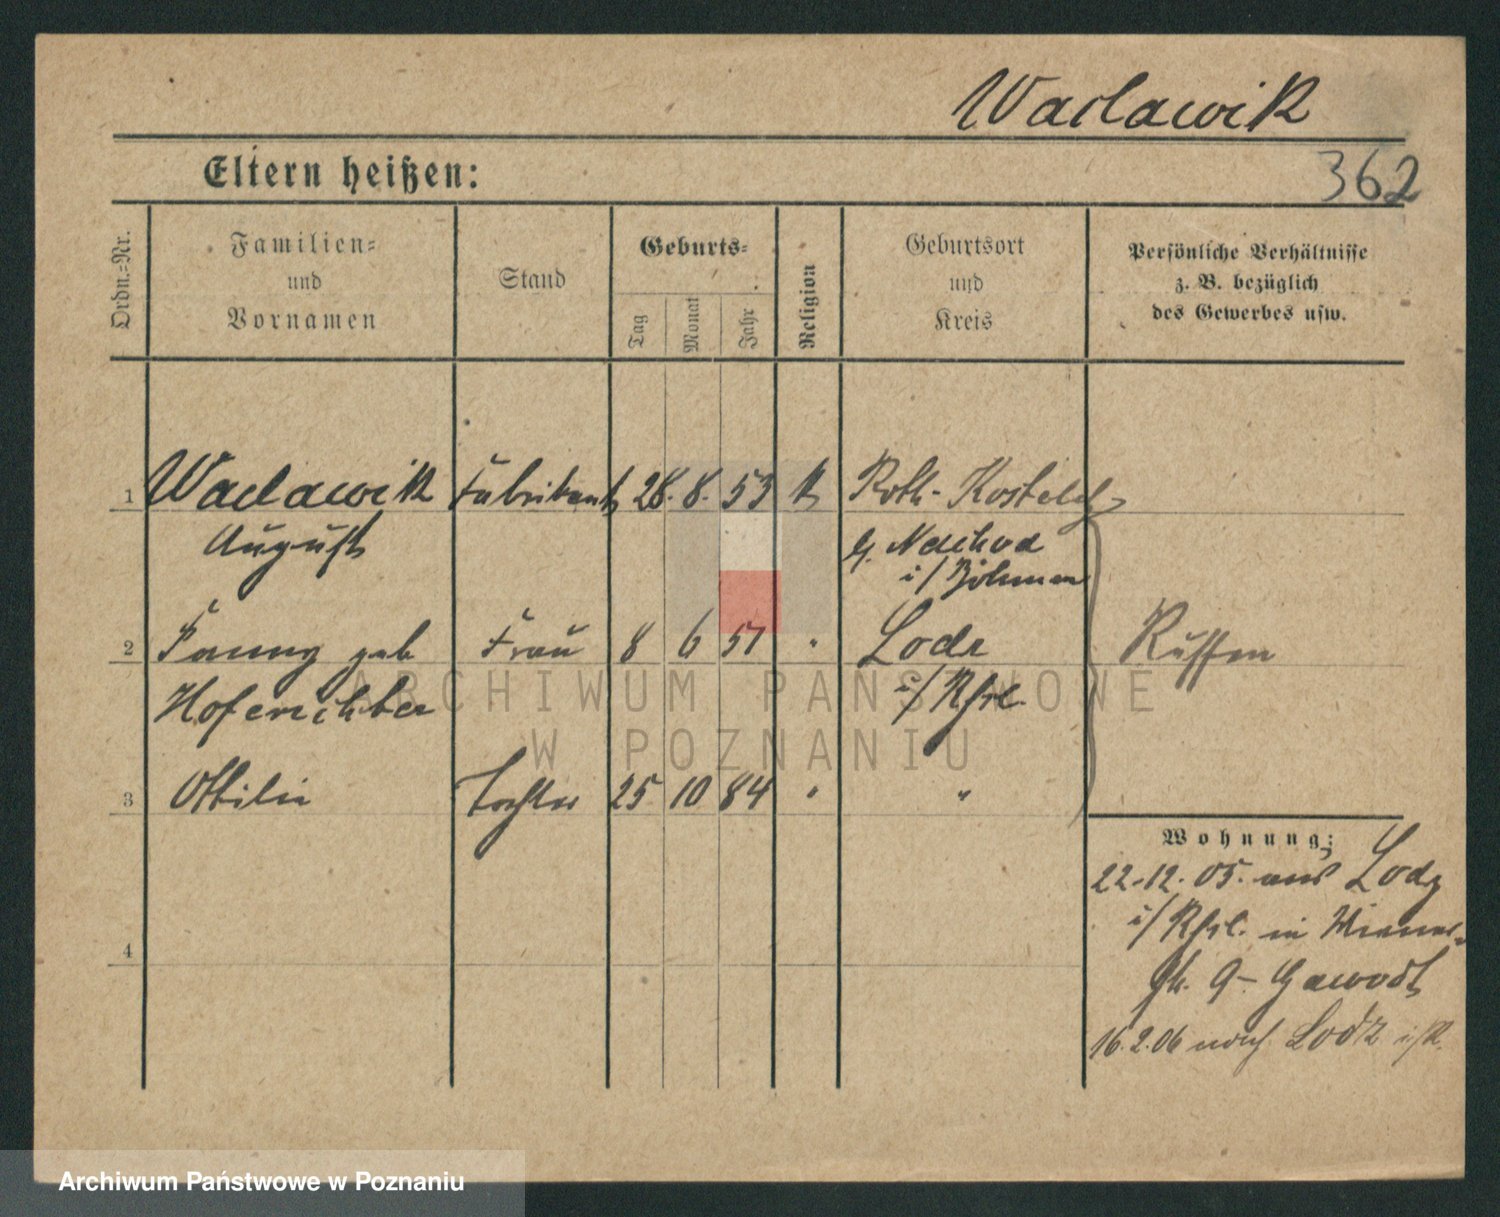 Waclawik
Eltern heißen:
362
Ordn.=Nr.
Familien=
und
Vornamen
Stand
Geburts=
Tag
Monat
Jahr
Religion
Geburtsort
und
Kreis
Persönliche Verhältnisse
z. B. bezüglich
des Gewerbes usw.
1 Waclawik Fabrikant 28. 8. 53 k Roth-Kosteletz
August
b. Nachod
i/Böhmen
2 Fanny geb Frau 8 6 57 " Lodz
Hoferichter i/Rßl.
Russen
3 Ottilie Tochter 25 10 84 " "
4
Wohnung:
22.12.05. aus Lodz
i/Rßl. in
9
16.2.06 nach Lodz i/R.
ARCHIWUM PAŃSTWOWE
W POZNANIU
Archiwum Państwowe w Poznaniu